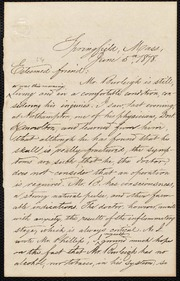 Springfield, Mass,
June 5th 1878
Esteemed friend:
Mr Burleigh is still
living and in a comfortable condition, con-
sidering his injuries. I saw last evening
at Northampton one of his physicians, Doct
and learned from him
that although he has found that the
skull is fractured, the symp-
toms are such that he, the doctor,
does not consider that an operation
is required. Mr B. has consciousness,
a strong arterial pulse, and other favor-
able indications. The doctor, however, awaits
with anxiety, the result of the inflammatory
stage, which is always critical. As I
wrote Mr Phillips, I ground much hope
in the fact that Mr Burleigh has no
alcohol, nor tobacco, in his system, is